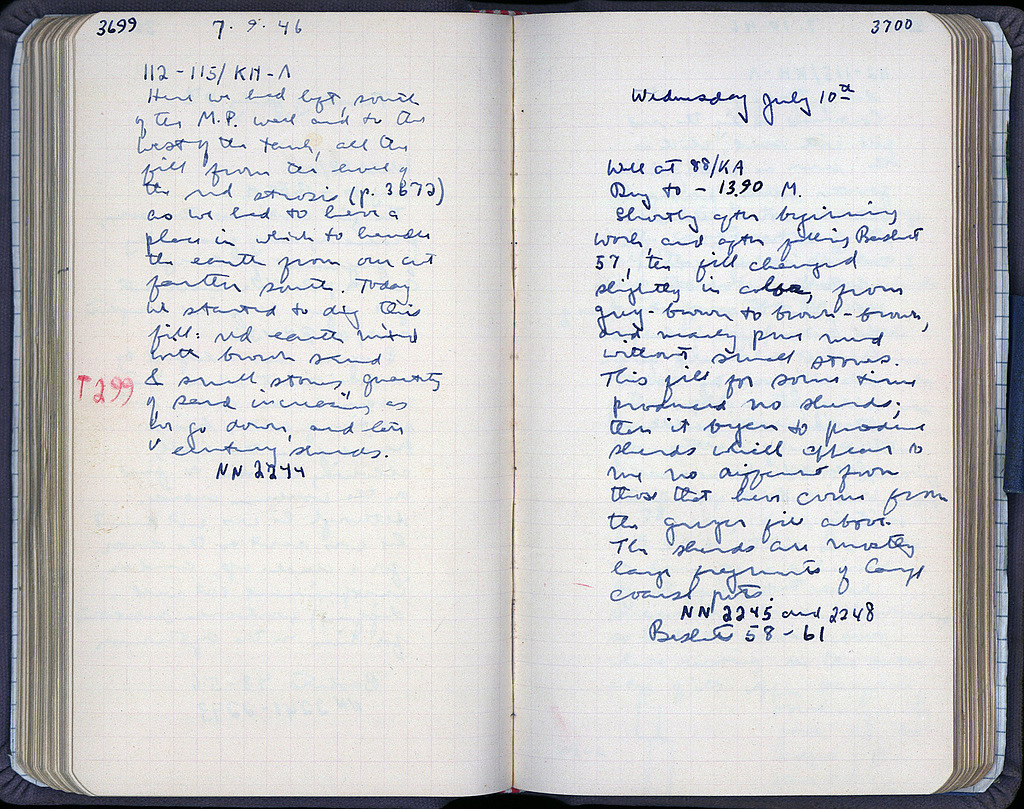 3699
7.9.46
112-115/KH-Λ
Here we had left, south
of the M.P. wall and to the
west of the tank, all the
fill from the level of
the red strosis (p. 3672)
as we had to have a
place in which to handle
the earth from our cut
farther south. Today
we started to dig this
fill: red earth mixed
with brown sand
& small stones, quantity
T299
of sand increasing as
we go down, and late
V century sherds.
NN 2244
3700
Wednesday July 10th
Well at 88/KA
Dug to - 13.90 M.
Shortly after beginning
work, and after filling Basket
57, the fill changed
slightly in color, from
grey-brown to brown-brown,
and nearly pure mud
without small stones.
This fill for some time
produced no sherds;
then it began to produce
sherds which appear to
me no different from
those that have come from
the greyer fill above.
The sherds are mostly
large fragments of large
coarse pots.
NN 2245 and 2248
Baskets 58-61